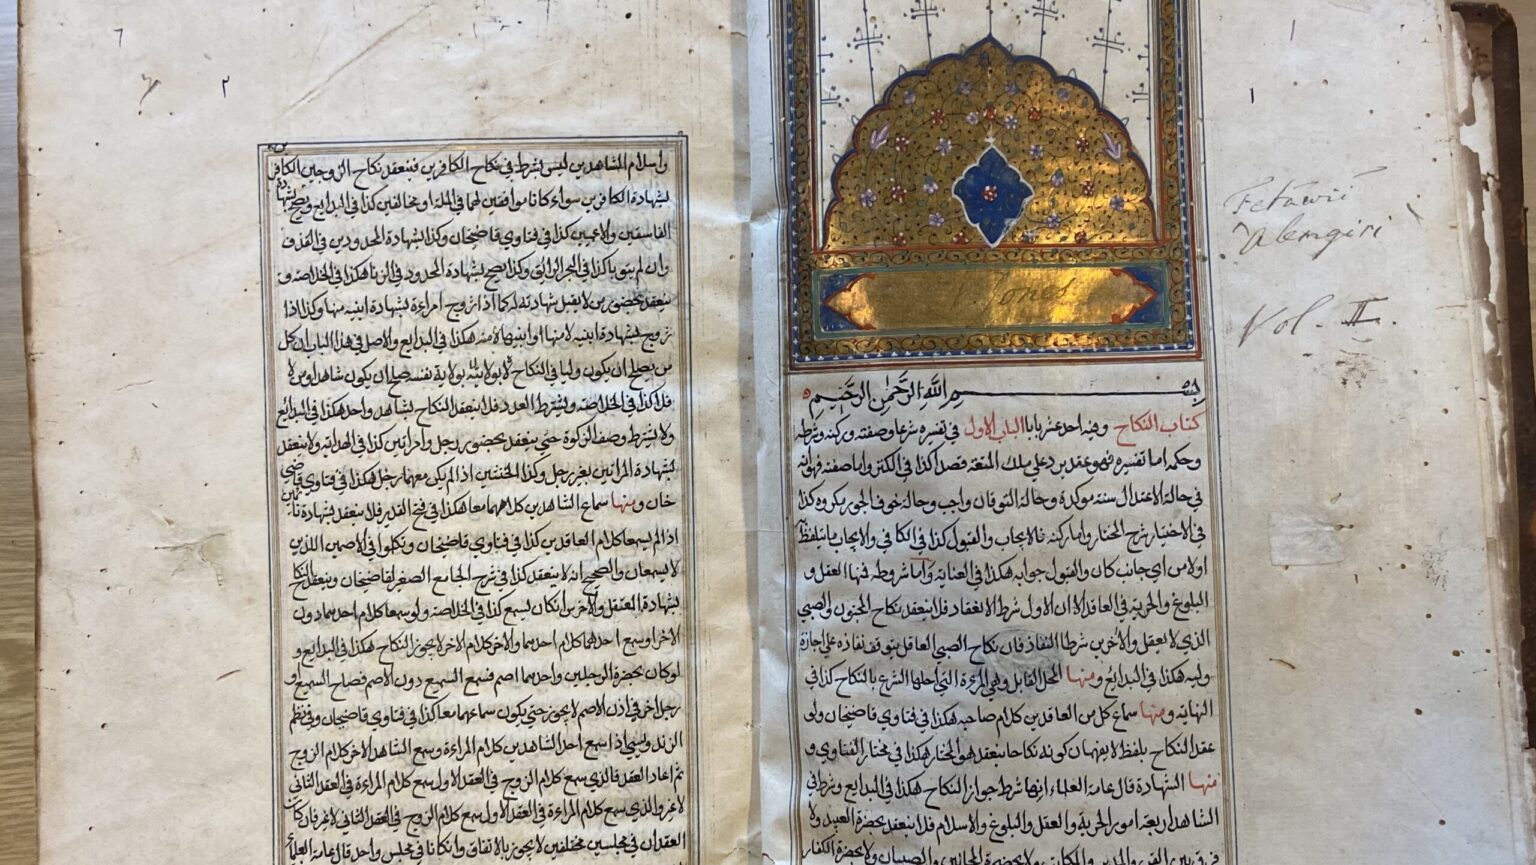 ١
Fetawii
Alemgiri
Vol. II.
Jones
بسم الله الرحمن الرحيم
كتاب النكاح وفيه احد عشر بابا الباب الاول في تفسيره شرعا وصفته وركنه وشرطه
وحكمه اما تفسيره فهو عقد يرد على ملك المتعة قصدا كذا في الكنز واما صفته فهو انه
في حالة الاعتدال سنة موكدة وحالة التوقان واجب وحالة خوف الجور مكروه كذا
في الاختيار شرح المختار واما ركنه فالايجاب والقبول كذا في الكافي والايجاب ما يتلفظ به
اولا من اي جانب كان والقبول جوابه هكذا في العناية واما شروطه فمنها العقل و
البلوغ والحرية في العاقد الا ان الاول شرط الانعقاد فلا ينعقد نكاح المجنون والصبي
الذي لا يعقل والاخرين شرطا النفاذ فان نكاح الصبي العاقل يتوقف نفاذه على اجازة
وليه هكذا في البدايع ومنها المحل القابل وهي المرءة التي احلها الشرع بالنكاح كذا في
النهاية ومنها سماع كل من العاقدين كلام صاحبه هكذا في فتاوي قاضيخان ولو
عقد النكاح بلفظ لا يفهمان كونه نكاحا ينعقد هو المختار هكذا في مختار الفتاوي و
منها الشهادة قال عامة العلماء انها شرط جواز النكاح هكذا في البدايع وشرط في
الشاهد اربعة امور الحرية والعقل والبلوغ والاسلام فلا ينعقد بحضرة العبيد ولا
فرق بين القن والمدبر والمكاتب ولا بحضرة المجانين والصبيان ولا بحضرة الكفار
٢
واسلام الشاهدين ليس بشرط في نكاح الكافرين فينعقد نكاح الزوجين الكافرين
بشهادة الكافرين سواء كانا موافقين لهما في الملة او مخالفين كذا في البدايع ويصح بشهادة
الفاسقين والاعميين كذا في فتاوي قاضيخان وكذا بشهادة المحدودين في القذف
وان لم يتوبا كذا في البحر الرائق وكذا يصح بشهادة المحدود في الزنا هكذا في الخلاصة و
ينعقد بحضور من لا يقبل شهادته له كما اذا تزوج امراءة بشهادة ابنيه منها وكذا اذا
تزوج بشهادة ابنيه لا منها او ابنيها لا منه هكذا في البدايع والاصل في هذا الباب ان كل
من يصلح ان يكون وليا في النكاح بولاية نفسه صلح ان يكون شاهدا ومن لا
فلا كذا في الخلاصة ويشترط العدد فلا ينعقد النكاح بشاهد واحد هكذا في البدايع
ولا يشترط وصف الذكورة حتى ينعقد بحضور رجل وامراتين كذا في الهداية ولا ينعقد
بشهادة المراتين بغير رجل وكذا الخنثيين اذا لم يكن معهما رجل هكذا في فتاوي قاضي
خان ومنها سماع الشاهدين كلامهما معا هكذا في فتح القدير فلا ينعقد بشهادة نائمين
اذا لم يسمعا كلام العاقدين كذا في فتاوي قاضيخان وتكلموا في الاصمين اللذين
لا يسمعان والصحيح انه لا ينعقد كذا في شرح الجامع الصغير لقاضيخان وينعقد النكاح
بشهادة المعتقل والاخرس ان كان يسمع كذا في الخلاصة ولو سمعا كلام احدهما دون
الاخر او سمع احدهما كلام احدهما والاخر كلام الاخر لا يجوز النكاح هكذا في البدايع و
لو كان بحضرة الرجلين واحدهما اصم فسمع السميع دون الاصم فصاح السميع او
رجل اخر في اذن الاصم لا يجوز حتى يكون سماعهما معا كذا في فتاوي قاضيخان وفي نظم
الزندويسي اذا سمع احد الشاهدين كلام المراءة وسمع الشاهد الاخر كلام الزوج
ثم اعاد العقد فالذي سمع كلام الزوج في العقد الاول سمع كلام المراءة في العقد الثاني
لا غير والذي سمع كلام المراءة في العقد الاول سمع كلام الزوج في العقد الثاني لا غير فان كان
العقدان في مجلسين مختلفين لا يجوز بالاتفاق وان كانا في مجلس واحد قال عامة العلماء